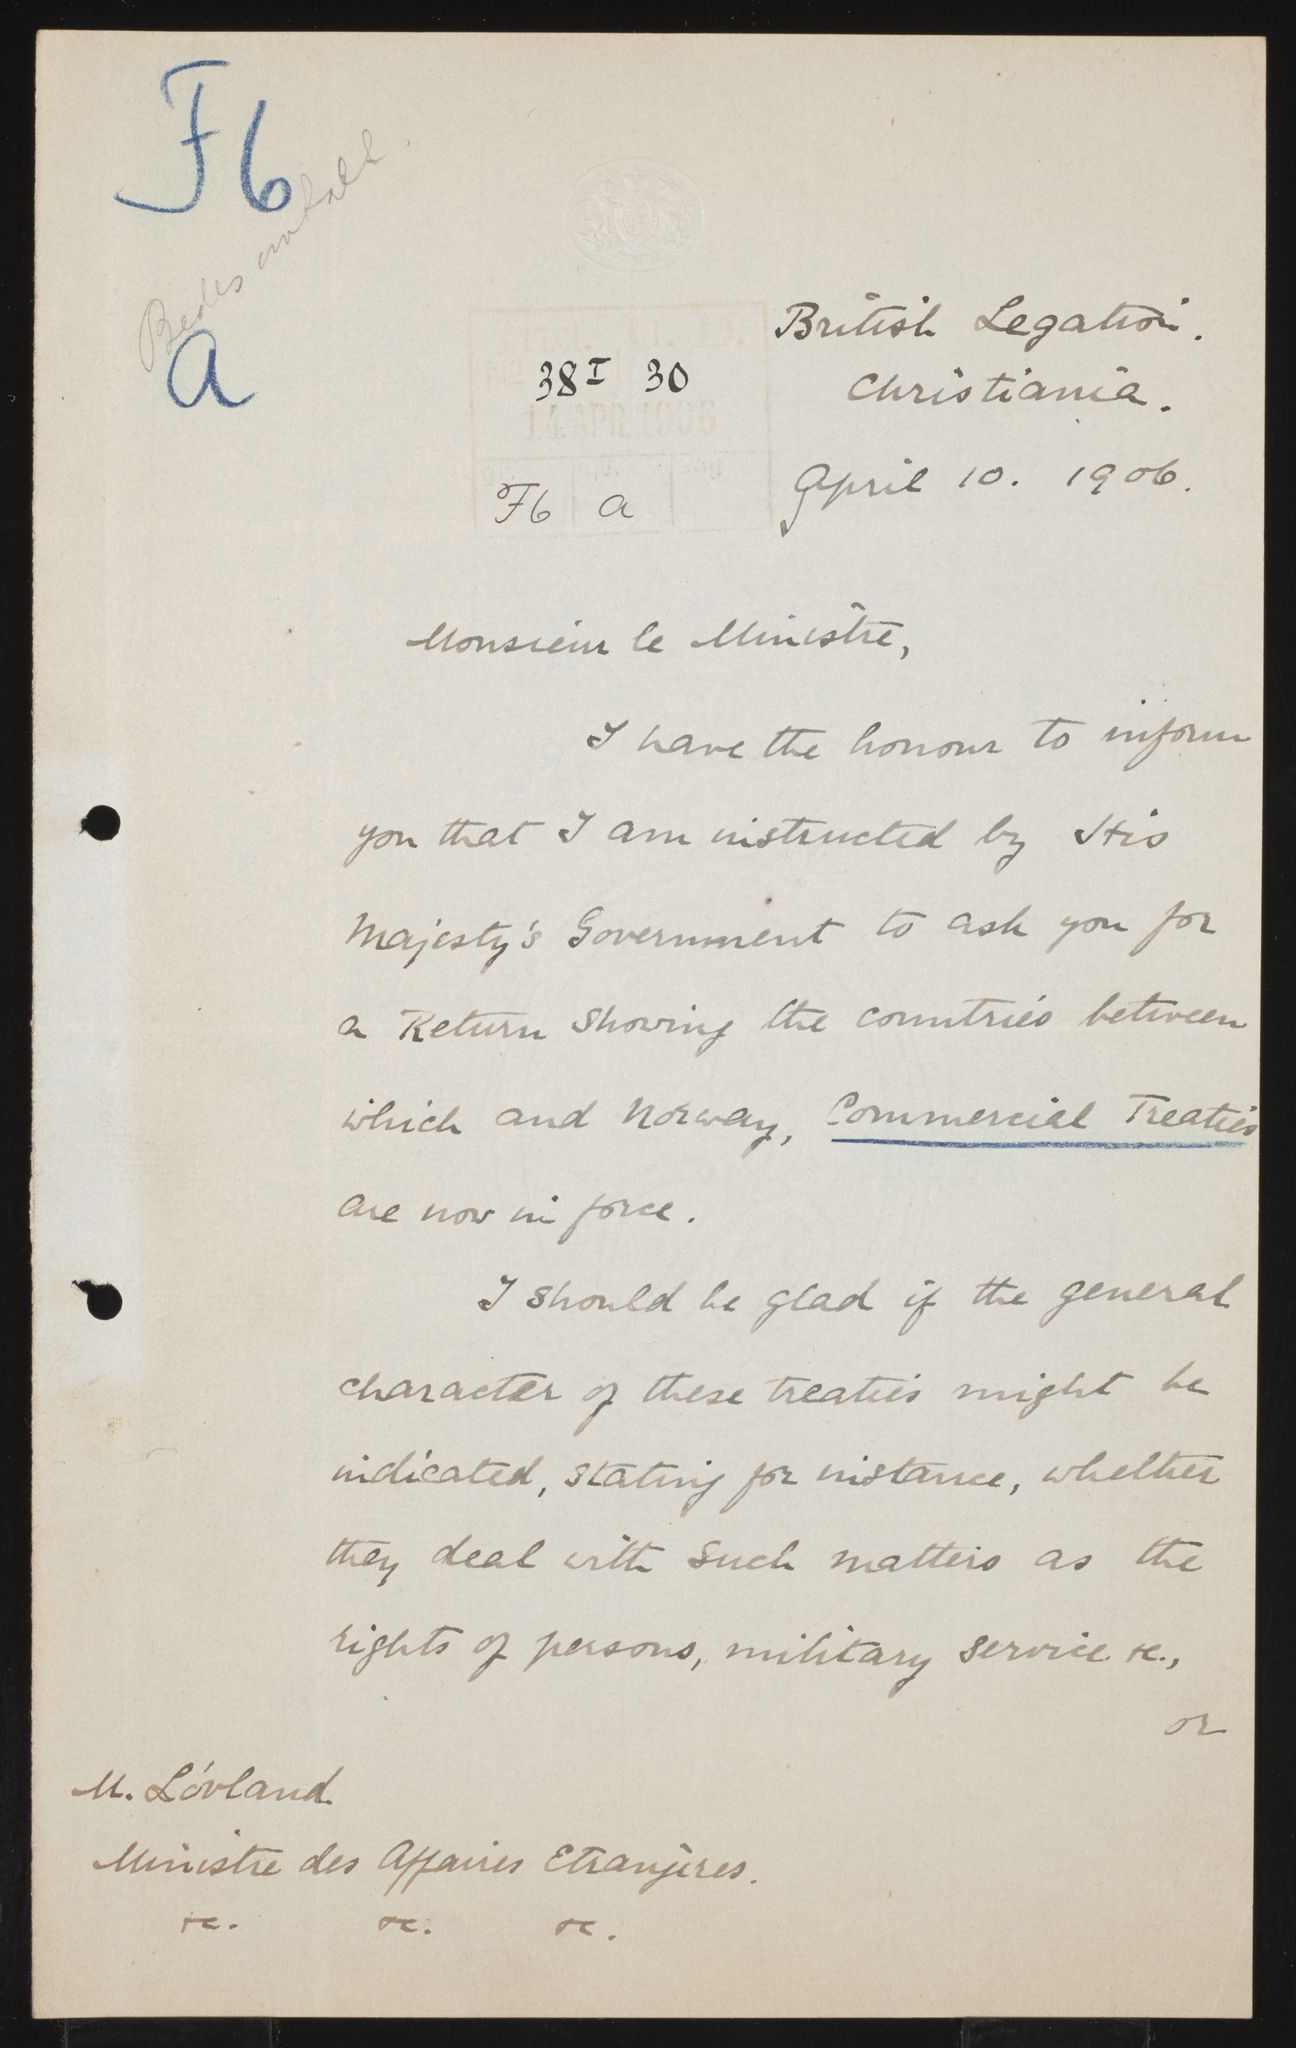 F6
a
British Legation.
38 I 30
Christiania.
14 APR. 1906
F6 a
April 10. 1906.
Monsieur le Ministre,
I have the honour to inform
you that I am instructed by His
Majesty's Government to ask you for
a Return showing the countries between
which and Norway, Commercial Treaties
are now in force.
I should be glad if the general
character of these treaties might be
indicated, stating for instance, whether
they deal with such matters as the
rights of persons, military service &c.,
or
M. Lövland.
Ministre des Affaires Etrangères.
&c. &c. &c.